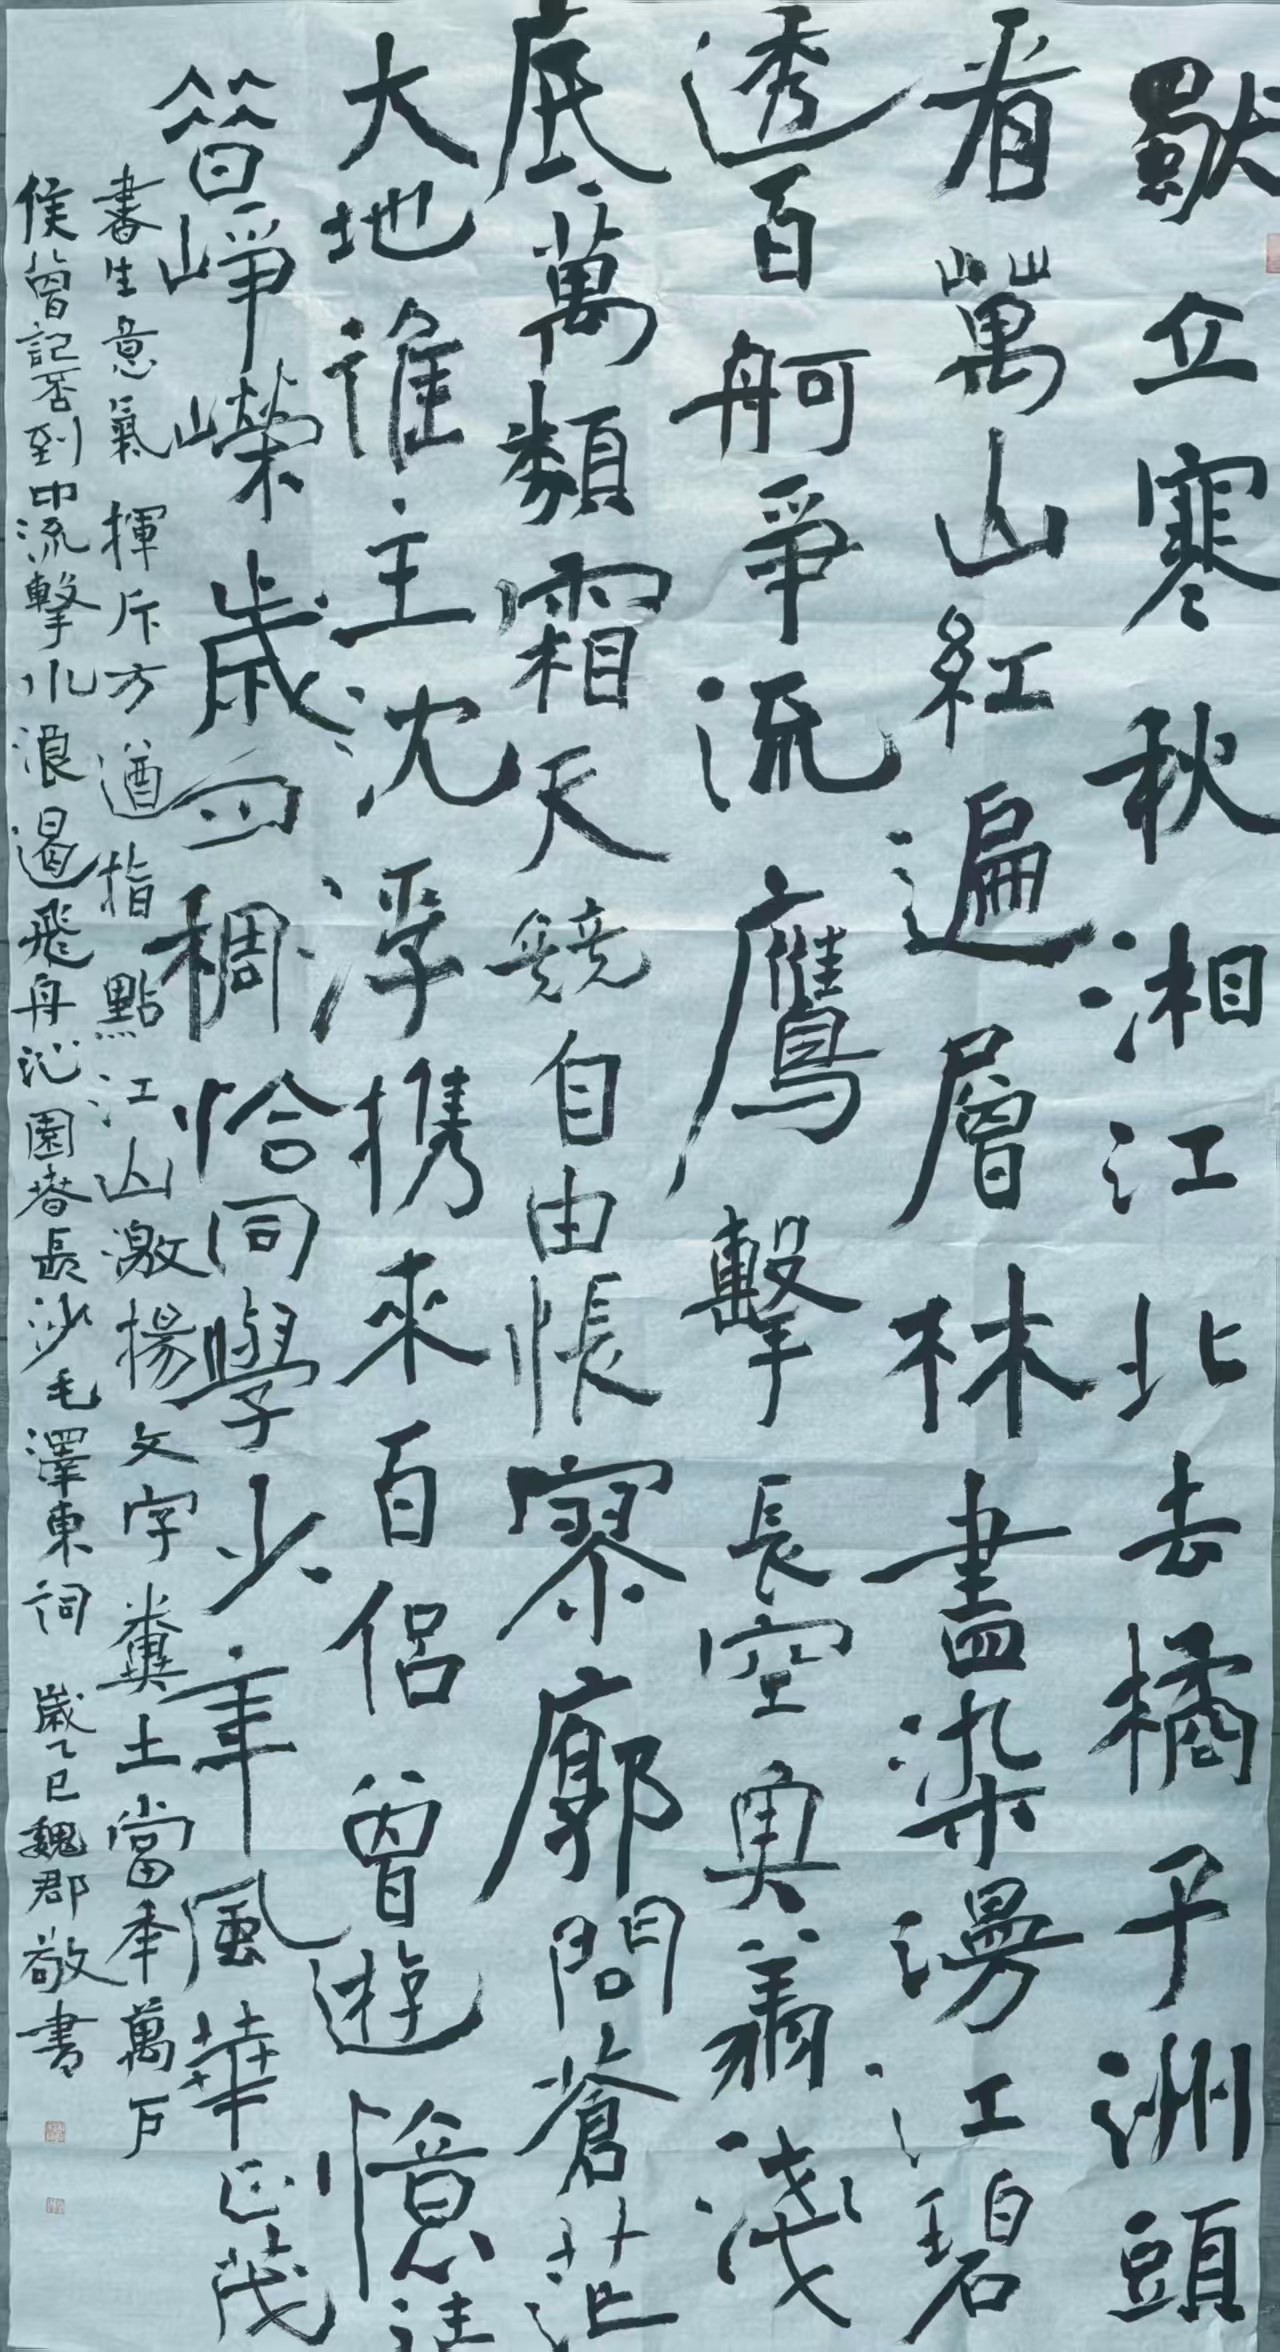 獨立寒秋湘江北去橘子洲頭
看萬山紅遍層林盡染漫江碧
透百舸爭流鷹擊長空魚翔淺
底萬類霜天競自由悵寥廓問蒼茫
大地誰主沈浮携來百侶曾遊憶往
昔崢嶸歲月稠恰同學少年風華正茂
書生意氣揮斥方遒指點江山激揚文字糞土當年萬戶
侯曾記否到中流擊水浪遏飛舟沁園春長沙毛澤東詞 歲乙巳魏郡敬書